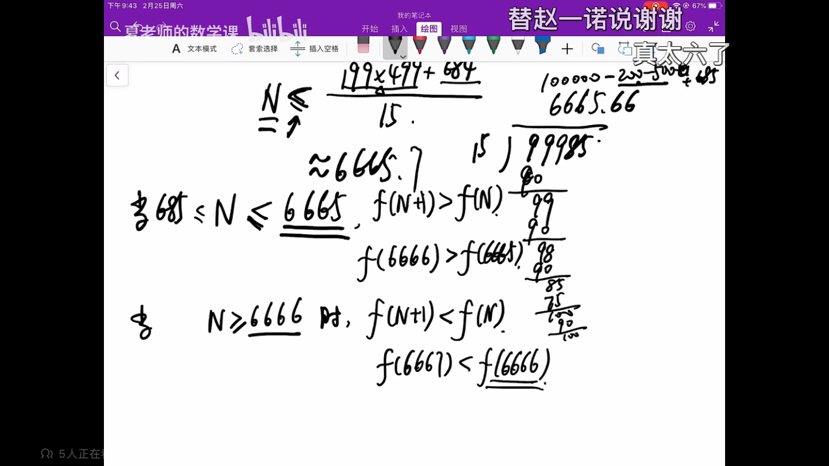 下午9:43 2月25日周六
我的笔记本
67%
夏老师的数学课
开始 插入 绘图 视图
替赵一诺说谢谢
真太六了
文本模式 套索选择 插入空格
N ≤ (199×499+684)/15
100000-200-500+685
≈6665.7
6665.66
15 ) 99985
90
99
90
98
90
85
75
100
90
100
当685 ≤ N ≤ 6665, f(N+1) > f(N)
f(6666) > f(6665)
当 N ≥ 6666 时, f(N+1) < f(N).
f(6667) < f(6666).
5人正在